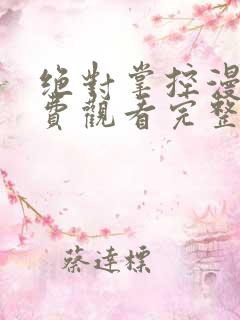 绝對掌控漫
費觀看完整
蔡達標